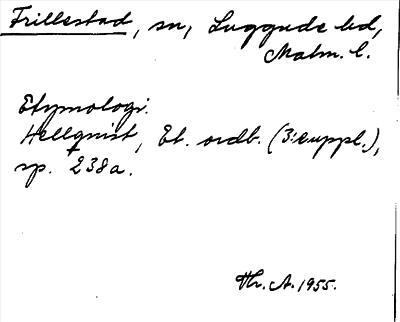 Frillestad, sn, Luggude hd,
Malm. l.
Etymologi.
Hellquist, Et. ordb. (3:e uppl.),
sp. 238a.
Hr. A. 1955.